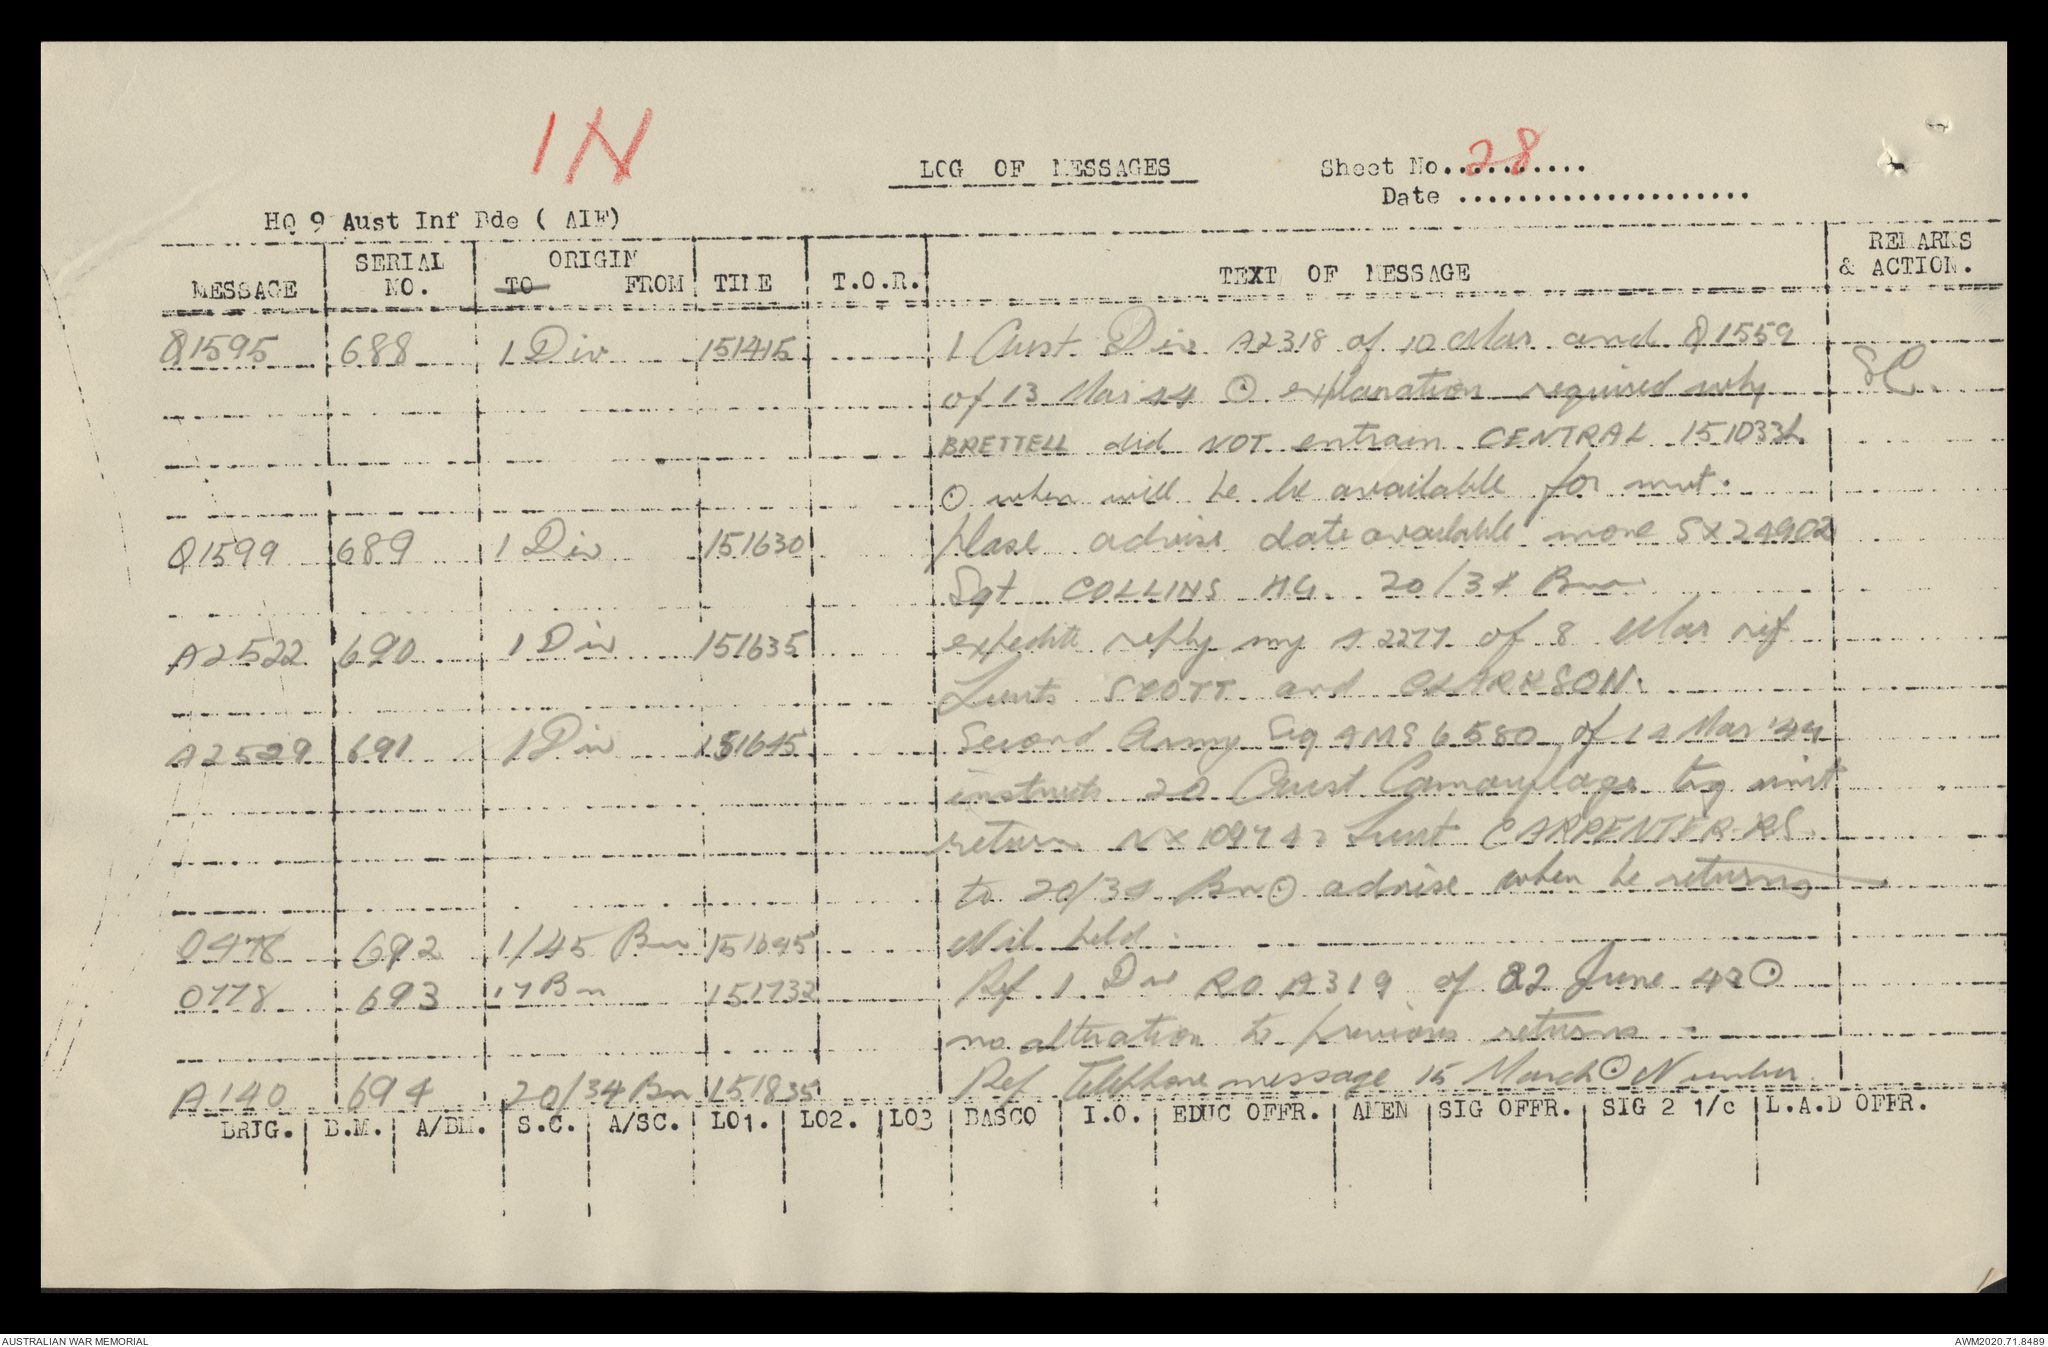 IN
LOG OF MESSAGES
Sheet No. 28
Date
HQ 9 Aust Inf Bde ( AIF)
MESSAGE SERIAL NO. ORIGIN TO FROM TIME T.O.R. TEXT OF MESSAGE REMARKS & ACTION.
Q1595 688 1 Div 151415 1 Aust Div A2318 of 10 Mar and Q1559
of 13 Mar 44 ⊙ explanation required why SC.
BRETTELL did NOT entrain CENTRAL 151033L
⊙ when will he be available for mvt.
Q1599 689 1 Div 151630 please advise date available move SX24902
Sgt COLLINS HG. 20/34 Bn
A2522 690 1 Div 151635 expedite reply my A2277 of 8 Mar ref
Lieuts SCOTT and CLARKSON.
A2529 691 1 Div 151645 Second Army Sig AMS 6580 of 14 Mar 44
instructs 20 Aust Camouflage trg unit
return Lieut CARPENTER RS.
to 20/34 Bn ⊙ advise when he returns
0478 692 1/45 Bn 151645 Nil held.
0778 693 17 Bn 151732 Ref 1 Div RO A319 of 22 June 43 ⊙
no alteration to previous returns
A140 694 20/34 Bn 151835 Ref Telephone message 15 March ⊙ Number
BRIG. B.M. A/BM. S.C. A/SC. LO1. LO2. LO3 BASCO I.O. EDUC OFFR. AMEN SIG OFFR. SIG 2 1/c L.A.D OFFR.
AUSTRALIAN WAR MEMORIAL AWM2020.71.8489